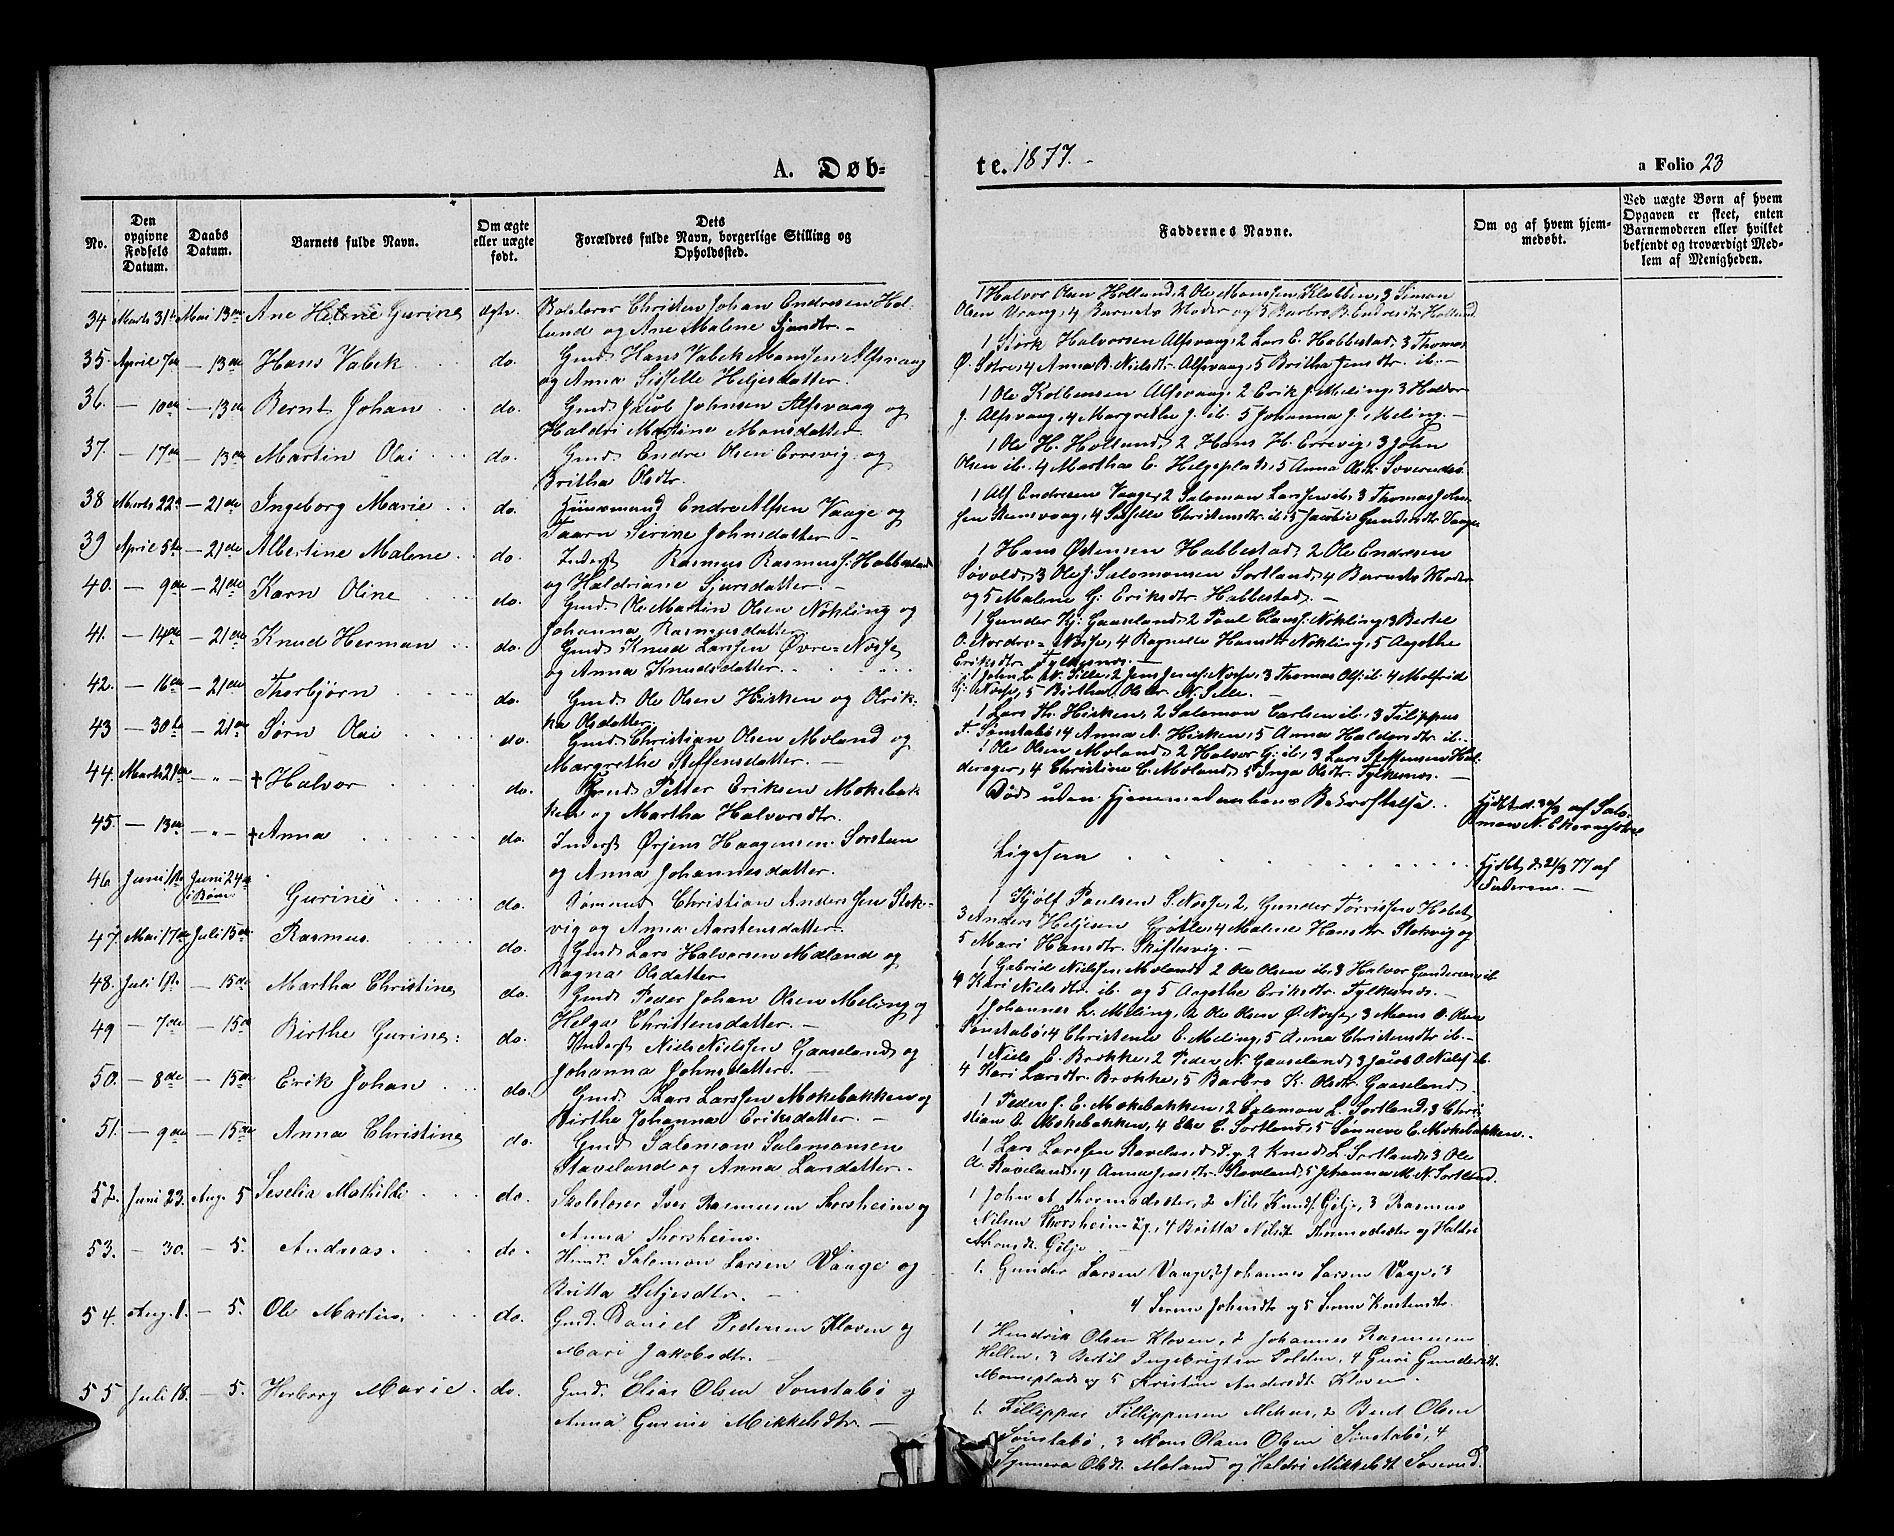 A. Døb-
te. 1877.
a Folio 23
No.
Den opgivne Fødsels Datum.
Daabs Datum.
Barnets fulde Navn.
Om ægte eller uægte født.
Dets Forældres fulde Navn, borgerlige Stilling og Opholdssted.
Faddernes Navne.
Om og af hvem hjemmedøbt.
Ved uægte Børn af hvem Opgaven er skeet, enten Barnemoderen eller hvilket bekjendt og troværdigt Medlem af Menigheden.
34 Marts 31te Mai 13de Ane Helene Gurine ægte. Christen Johan Endresen Hol-
lunde og Ane Malene
1 Halvor Olsen Holland, 2 Ole Monssen Klubben, 3 Simon
Olsen Vaag, 4 Barnets Moder og 5 Barbro B. Endresdtr. Holland
35. April 7de — 13de Hans Vabek do. Gmd. Hans Vabek Monssen Alfsvaag
og Anna Sisselle Heljesdatter.
1 Størk Halvorsen Alfsvaag, 2 Lars E. Habbestad, 3 Thomas
Ø. Sotre, 4 Anna B. Nielsdtr. Alfsvaag, 5 Britha Jensdtr. ib.
36. — 10de — 13de Bernt Johan do. Gmd. Jacob Johnsen Alfsvaag og
Haldri Martine Monsdatter.
1 Ole Kolbensen Alfsvaag, 2 Erik J. Meling, 3 Haldor
J. Alfsvaag, 4 Margrethe J. ib. 5 Johanna J. Meling.
37. — 17de — 13de Martin Olai do. Gmd. Endre Olsen Errevig og
Britha Olsdtr.
1 Ole H. Holland, 2 Hans H. Errevig, 3 John
Olsen ib. 4 Martha E. Helgeplads, 5 Anna Olsdtr.
38 Marts 22de — 21de Ingeborg Marie do. Huusmand Endre Alfsen Vaage og
Taarn Serine Johnsdatter.
1 Alf Endresen Vaage, 2 Salomon Larssen ib. 3 Thomas John-
sen Stensvaag, 4 Sisselle Christensdtr. ib. 5 Jacobie Gundersdtr. Vaage
39 April 5te — 21de Albertine Malene do. Inderst Rasmus Rasmuss. Habbestad
og Haldriane Sjursdatter.
1 Hans Østensen Habbestad, 2 Ole Endresen
Søvold, 3 Ole J. Salomonsen Sortland, 4 Barnets Moder
og 5 Malene G. Eriksdtr. Habbestad.
40. — 9de — 21de Karn Oline do. Gmd. Ole Martin Olsen Nøkling og
Johanna Rasmusdatter
1 Gunder Hj. Gaaseland, 2 Paul Clauss. Nøkling, 3 Bertel
O. Nordre-Nosse, 4 Ragnelle Hansdtr. Nøkling, 5 Aagothe
Eriksdtr. Fylkesnes.
41. — 14de — 21de Knud Herman do. Gmd. Knud Larssen Øvre-Nosse
og Anna Knudsdatter.
1 John L. N. Sille, 2 Jens Jensen Nosse, 3 Thomas Olss. ib. 4 Molfrid
Hj. Nosse, 5 Birtha Olsdr. N. Sille.
42. — 16de — 21de Thorbjørn do. Gmd. Ole Olsen Hisken og Olrik-
ka Olsdatter.
1 Lars Th. Hisken, 2 Salomon Carlsen ib. 3 Filippus
F. Sønstabø, 4 Anna A. Hisken, 5 Anna Haldorsdtr. ib.
43 — 30te — 21de Sørn Olai do. Gmd. Christian Olsen Moland og
Margrethe Steffensdatter.
1 Ole Olsen Moland, 2 Halvor Gj. ib. 3 Lars Steffensen Hal-
derager, 4 Christine C. Moland, 5 Inga Olsdtr. Fylkesnes.
44. Marts 21de - „ - † Halvor do. Gmd. Petter Eriksen Mokebak-
ken og Martha Halvorsdtr.
Død uden Hjemmedaabens Bekræftelse.
Hjdbt d. af Salo-
mon N.
45. — 13de - „ - † Anna do. Inderst Ørjens Haagensen Sørstun
og Anna Johannesdatter.
Ligesaa
Hjdbt d. 21/3 77 af
Faderen.
46 Juni Juni 24de
Gurine do. Rømmer Christian Anderssen Stok-
vig og Anna Aarstensdatter.
1 Kjølf Paulsen S. Nosse, 2, Gunder Tørrissen Habst.
3 Anders Heljesen Grøtle, 4 Malene Hansdtr. Stokvig og
5 Mari Hansdtr. Skiftesvig.
47. Mai 17de Juli 15de Rasmus do. Gmd. Lars Halvorsen Moland og
Ragna Olsdatter
1 Gabriel Nielssen Moland, 2 Ole Olsen ib. 3 Halvor Gundersen ib.
4 Kari Nielsdtr. ib. og 5 Aagothe Eriksdtr. Fylkesnes.
48. Juli — 15de Martha Christine do. Gmd. Peder Johan Olsen Meling og
Helga Christensdatter.
1 Johannes L. Meling, 2 Ole Olsen Ø. Nosse, 3 Mons O. Olsen
Sønstabø, 4 Christense O. Meling, 5 Anna Christensdtr ib.
49 — 7de — 15de Birthe Gurine do. Inderst Niels Nielssen Gaaseland og
Johanna Johnsdatter.
1 Niels E. Brokke, 2 Peder N. Gaaseland, 3 Jacob O. Nielss. ib.
4 Kari Larsdtr. Brokke, 5 Barbro K. Olsdtr. Gaaseland.
50. — 8de — 15de Erik Johan do. Gmd. Lars Larssen Mokebakken og
Birthe Johanna Eriksdatter.
1 Peder J. E. Mokebakken, 2 Salomon L. Sortland, 3 Chri-
stian E. Mokebakken, 4 Else C. Sortland, 5 Sønneve E. Mokebakken.
51. — 9de — 15de Anna Christine do. Gmd. Salomon Salomonsen
Staveland og Anna Larsdatter.
1 Lars Larssen Raveland, 2 Knud L. Sortland, 3 Ole
A. Raveland, 4 Anna Jensdtr. Raveland, 5 Johanna M. N. Sortland.
52. Juni 23. Aug. 5 Seselia Mathilde do. Skolelærer Iver Rasmussen Thorsheim og
Anna Thorsheim.
1 John A. Thormodsæter, 2 Nils Knuds. Gilje, 3 Rasmus
Nilsen Thorsheim, 4 Britta Nilsdt. Thormodsæter og Haldri
Monsdt. Gilje
53. — 30. — 5. Andreas. do. Hmd. Salomon Larsen Vaage og
Britta Heljesdtr.
1. Gunder Larsen Vaage, 2 Johannes Larsen Vaage, 3
4 Serine Johnsdtr og 5 Serine Knutsendtr.
54. Aug. 1. — 5. Ole Martin. do. Gmd. Daniel Pedersen Kloven og
Mari Jakobsdtr.
1 Hendrik Olsen Kloven, 2 Johannes Rasmussen
Hellen, 3 Bertil Ingebrigtsen Polden, 4 Guri Gundersdt.
Moneplads og 5 Kristine Andersdt. Kloven.
55 Juli 18. — 5. Herborg Marie. do. Gmd. Elias Olsen Sønstabø og
Anna Gurine Mikkelsdtr.
1. Fillippus Fillippusen Mehus, 2 Bent Olsen
Sønstabø, 3 Mons Olaus Olsen Sønstabø, 4
Synneva Olsdt. Moland og Haldri Mikkelsdt